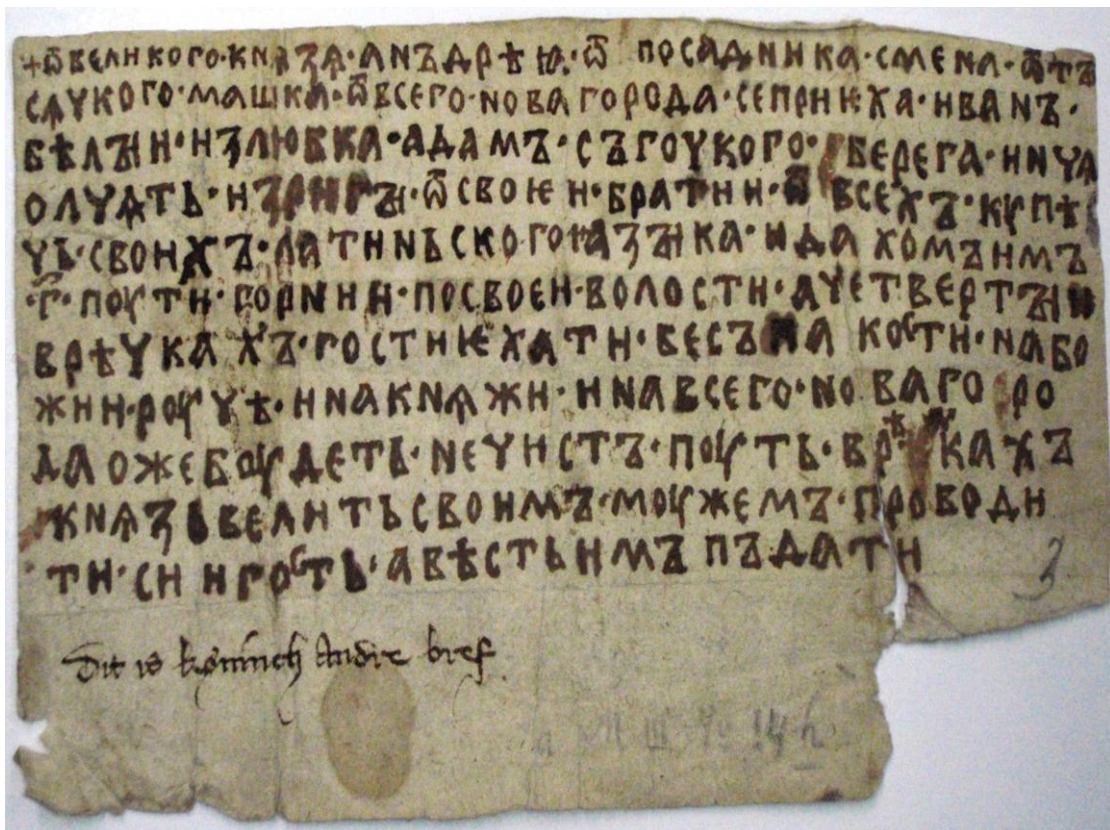 +ѿвеликого·кнѧзѧ·анъдрѣꙗ·ѿ посадника·смена·ѿтъ
сѧчкого·машка·ѿвсего·новагорода·сеприѥха·иванъ·
бѣлъи·излюбка·адамъ·съгоцкого·берега·инча
олчѧть·изригъи·ѿсвоѥи·братии·ѿ всехъ·купѣ
чь·своихъ·латиньского·ꙗзъика·ида хомъимъ
·г҃·поути·горнии·посвоеи·волости·ачетвертъи
врѣчка хъ·гостиѥхати·бесъпа кости·набо
жии·роучѣ·инакнѧжи·инавсего·новаго ро
да ожебоудеть·нечистъ·поуть·врѣчкахъ
кнѧзь велить своимъ·моужемъ·проводи
ти·сии гость·авѣстьимъ пъдати
3
Dit is konninch Andre bref